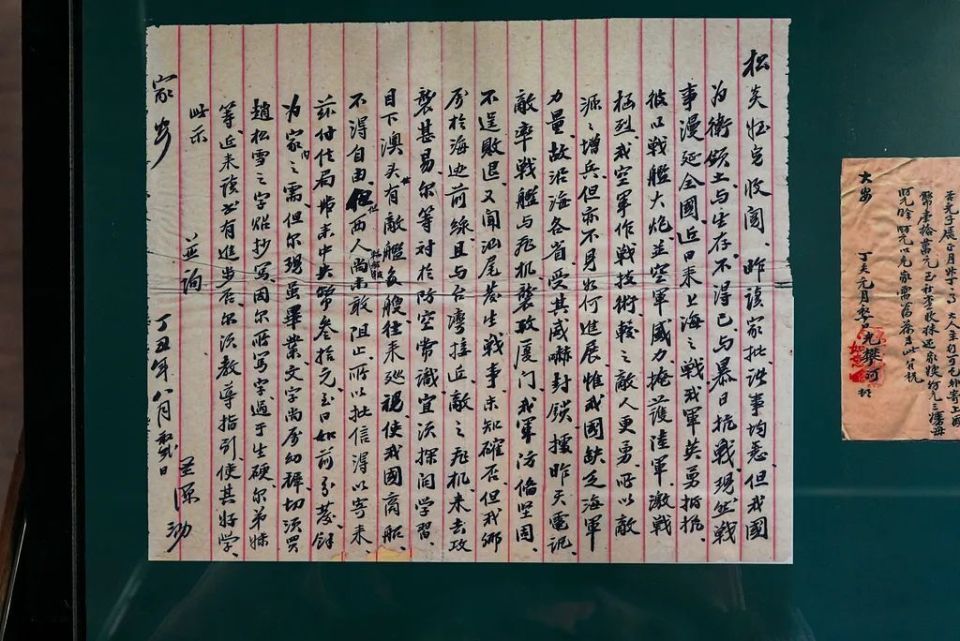 松炎姪兒收閱、昨談家批、詳事均悉、但我國
为衛領土与生存、不得已、与暴日抗戰、現然戰
事漫延全國、近日来上海之戰、我軍英勇抵抗、
彼以戰艦大炮並空軍威力、掩護陸軍、激戰
極烈、我空軍作戰技術、較之敵人更勇、所以敵
源々增兵、但亦不見如何進展、惟我國缺乏海軍
力量、故沿海各省受其威嚇封鎖、據昨天電訊、
敵率戰艦与飛机襲擊廈门、我軍防俻坚固、
不逞敗退、又闻汕尾發生戰事、未知確否、但我鄉
居於海边前線、且与台灣接近、敵之飛机来去攻
襲甚易、尔等对於防空常識宜須探问學習、
目下澳头有敵艦多艘往来巡視、使我國商船、
不得自由、但西人尚未敢阻止、所以批信得以寄来
茲付信局带来中央幣叁拾元、至日如前分發、餘
为家内之需、但尔現雖畢業、文字尚居幼稚、切須買
趙松雪之字帖抄寫、因尔所写字过于生硬、尔弟妹
等、近来讀书有進步否、尔須教導指引、使其好學、
此示 並詢
家安 丁丑年八月弍日 源泐
大安 丁亥元月